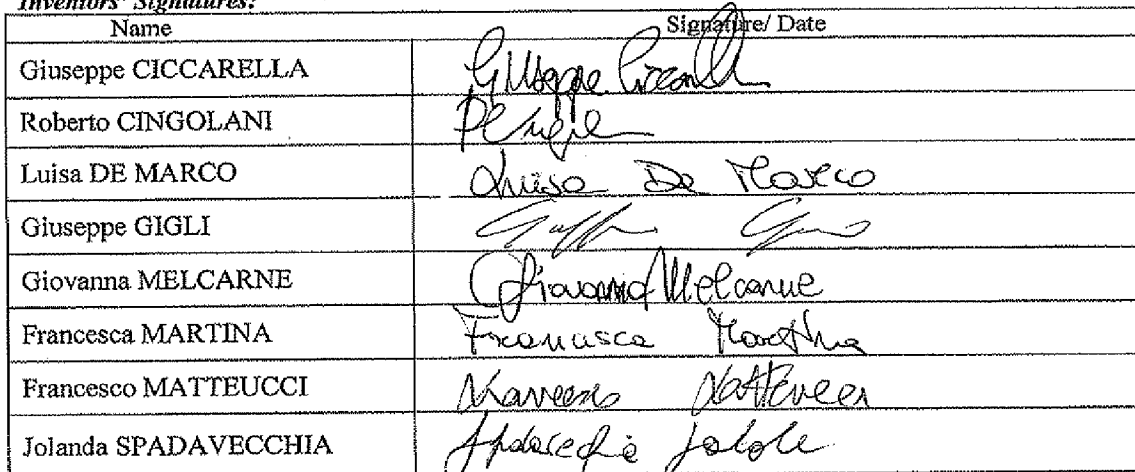 Inventors' Signatures:
Name Signature/ Date
Giuseppe CICCARELLA Giuseppe Ciccarella
Roberto CINGOLANI
Luisa DE MARCO Luisa De Marco
Giuseppe GIGLI
Giovanna MELCARNE Giovanna Melcarne
Francesca MARTINA Francesca Martina
Francesco MATTEUCCI Francesco Matteucci
Jolanda SPADAVECCHIA Spadavecchia Jolanda